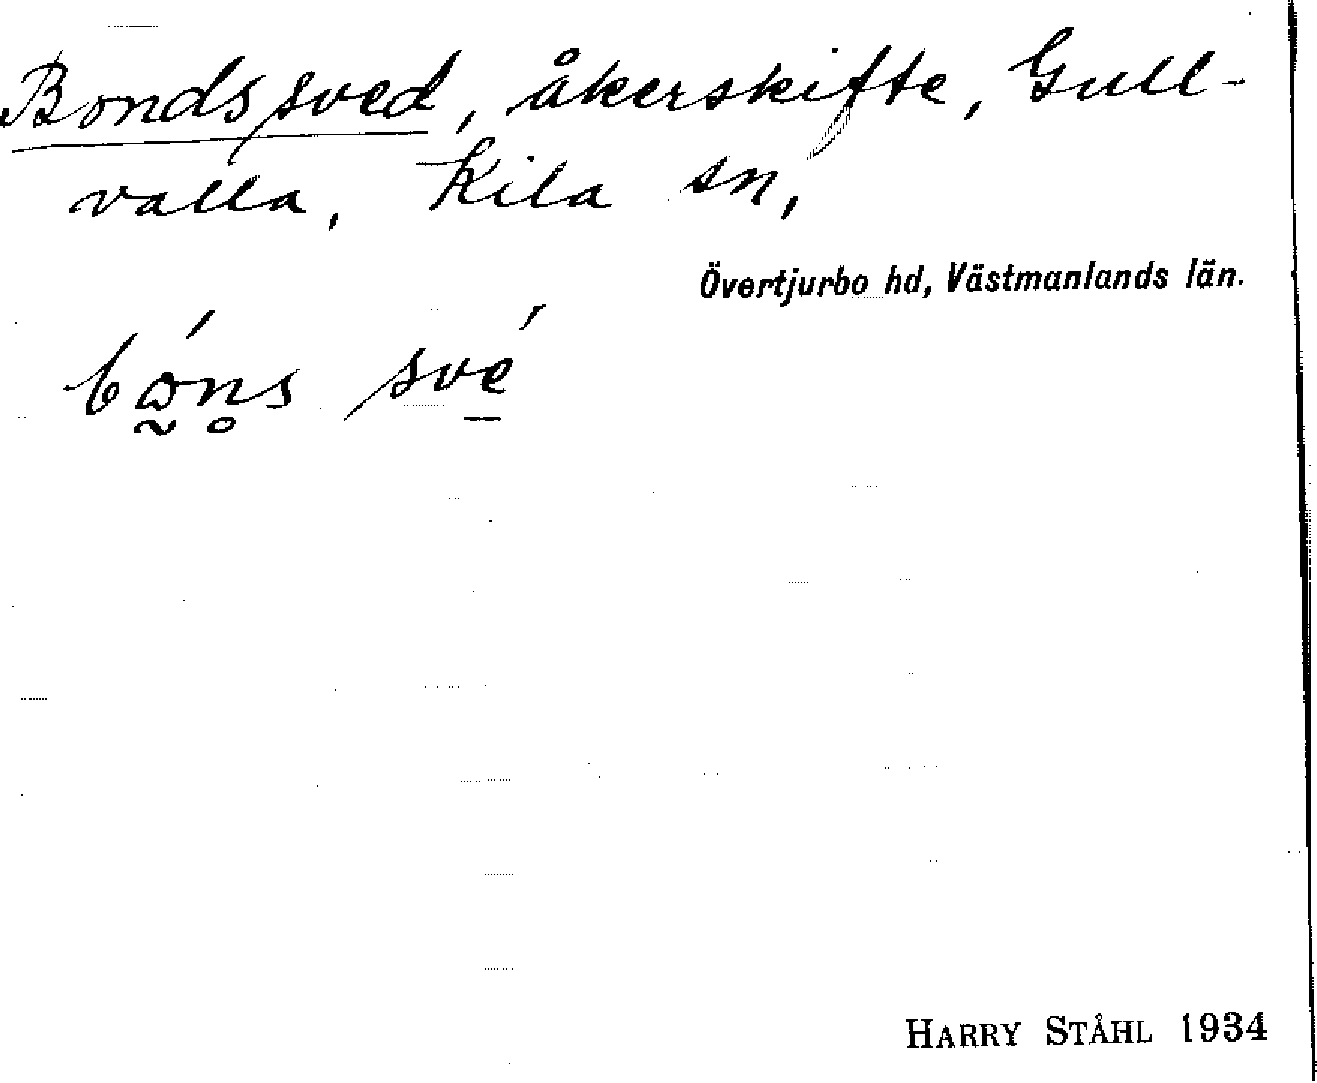 Bondssved, åkerskifte, Gull-
valla, Kila sn,
Övertjurbo hd, Västmanlands län.
bɷ̰́n̥s své̱
HARRY STÅHL 1934